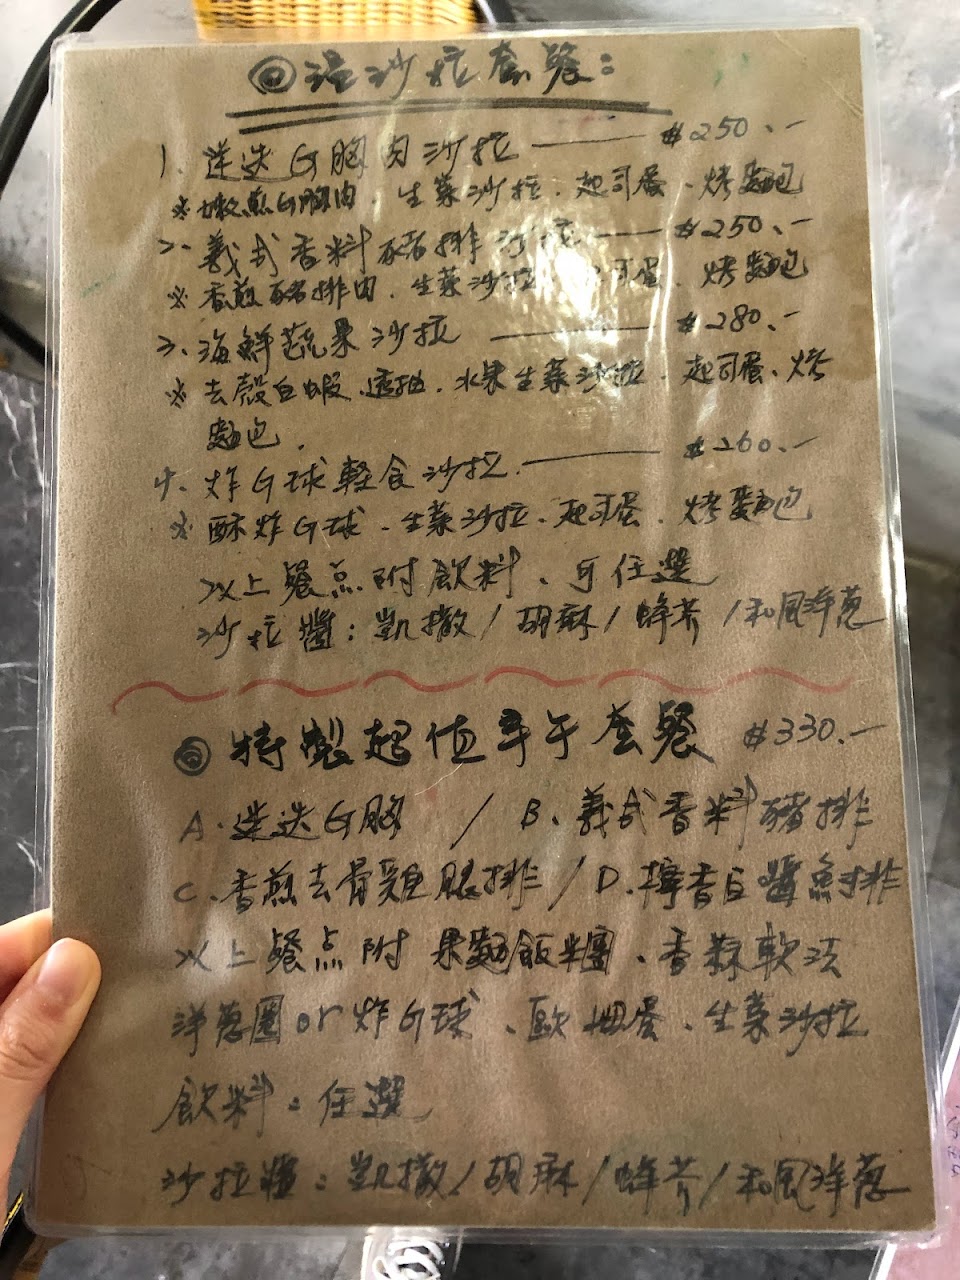 ◎沙拉套餐:
1. 迷迭G胸肉沙拉 —— $250.-
※嫩煎G胸肉、生菜沙拉、起司蛋、烤麵包
2. 義式香料豬排沙拉 —— $250.-
※香煎豬排肉、生菜沙拉、起司蛋、烤麵包
3. 海鮮蔬果沙拉 —— $280.-
※去殼白蝦、透抽、水果生菜沙拉、起司蛋、烤
麵包.
4. 炸G球輕食沙拉 —— $260.-
※酥炸G球、生菜沙拉、起司蛋、烤麵包
以上餐点附飲料、可任選
沙拉醬:凱撒/胡麻/蜂芥/和風洋蔥
◎特製超值早午套餐 $330.-
A.迷迭G胸 / B.義式香料豬排
C.香煎去骨雞腿排 / D.檸香魚排
以上餐点附 飯糰、香蒜軟法
洋蔥圈or炸G球、歐姆蛋、生菜沙拉
飲料:任選
沙拉醬:凱撒/胡麻/蜂芥/和風洋蔥